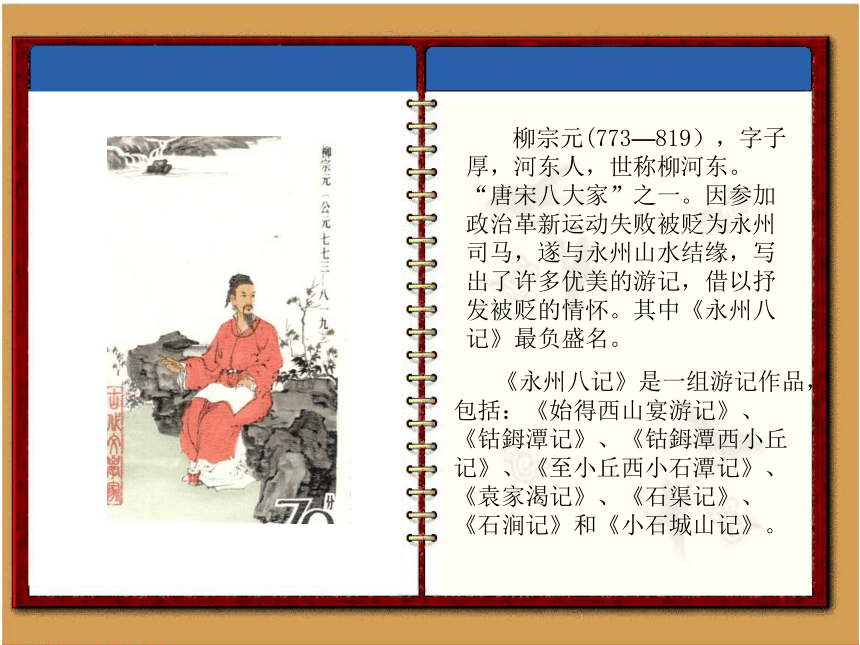 柳宗元（公元七七三—八一九）
古代文学家
70分
柳宗元(773—819），字子
厚，河东人，世称柳河东。
“唐宋八大家”之一。因参加
政治革新运动失败被贬为永州
司马，遂与永州山水结缘，写
出了许多优美的游记，借以抒
发被贬的情怀。其中《永州八
记》最负盛名。
《永州八记》是一组游记作品，
包括：《始得西山宴游记》、
《钴鉧潭记》、《钴鉧潭西小丘
记》、《至小丘西小石潭记》、
《袁家渴记》、《石渠记》、
《石涧记》和《小石城山记》。